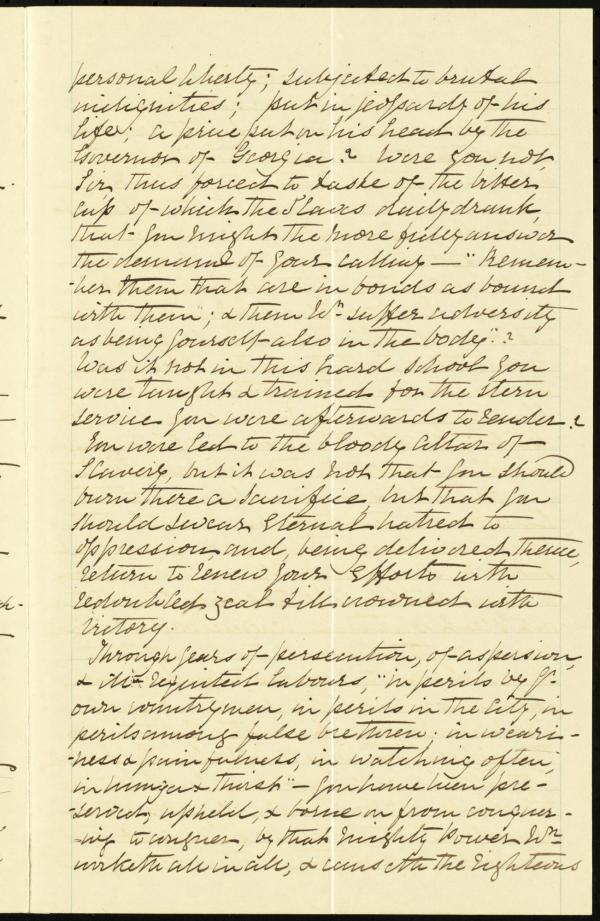 personal liberty; subjected to brutal
indignities; put in jeopardy of his
life; a price put on his head by the
Governor of Georgia? Were you not,
Sir, thus forced to taste of the bitter
cup of which the Slaves daily drank,
that you might the more fully answer
the demand of your calling — "Remem-
-ber them that are in bonds as bound
with them"; & them Wh. suffer adversity
as being yourself also in the body"?
Was it not in this hard school you
were taught & trained for the stern
service you were afterwards to render?
You were led to the bloody altar of
Slavery, but it was not that you should
burn there a sacrifice, but that you
should swear Eternal hatred to
oppression and, being delivered thence,
return to renew your Efforts with
redoubled zeal till crowned with
Victory.
Through years of persecution, of aspersion,
& ill requited labours, "in perils by yr.
own countrymen, in perils in the City, in
perils among false brethren; in weari-
-ness & painfulness, in watching often,
in hunger & thirst" — you have been pre-
-served, upheld, & borne on from conquer-
-ing to conquer, by that mighty Power Wh.
worketh all in all, & causeth the righteous